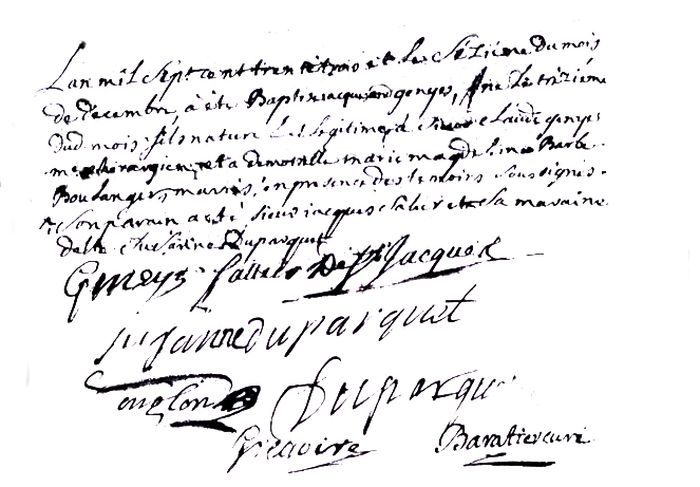 Lan mil sept cent trente trois et le séziéme du mois
de decembre, à été Baptise jacques gengés, né le tréziéme
dud mois, fils naturel et legitime a sieur claude gengés
me chirurgien, et a demoiselle marie magdeleine Barbe
Boulanger, mariés, en presence des temoins soussignés.
son parain a eté sieur jacques et sa maraine
delle Duparquet
St Jacques
Suzanne duparquet
Duparquet
Gregoire Baratier curé